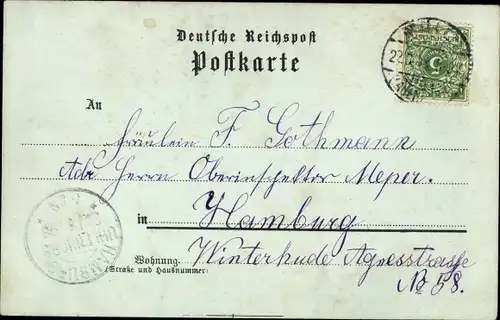 Deutsche Reichspost
Postkarte
An
Fräulein F. Gothmann
Adr Herrn Oberinspektor Meyer.
in Hamburg
Wohnung Winterhude Agnesstrasse
(Straße und Hausnummer)
No 58.